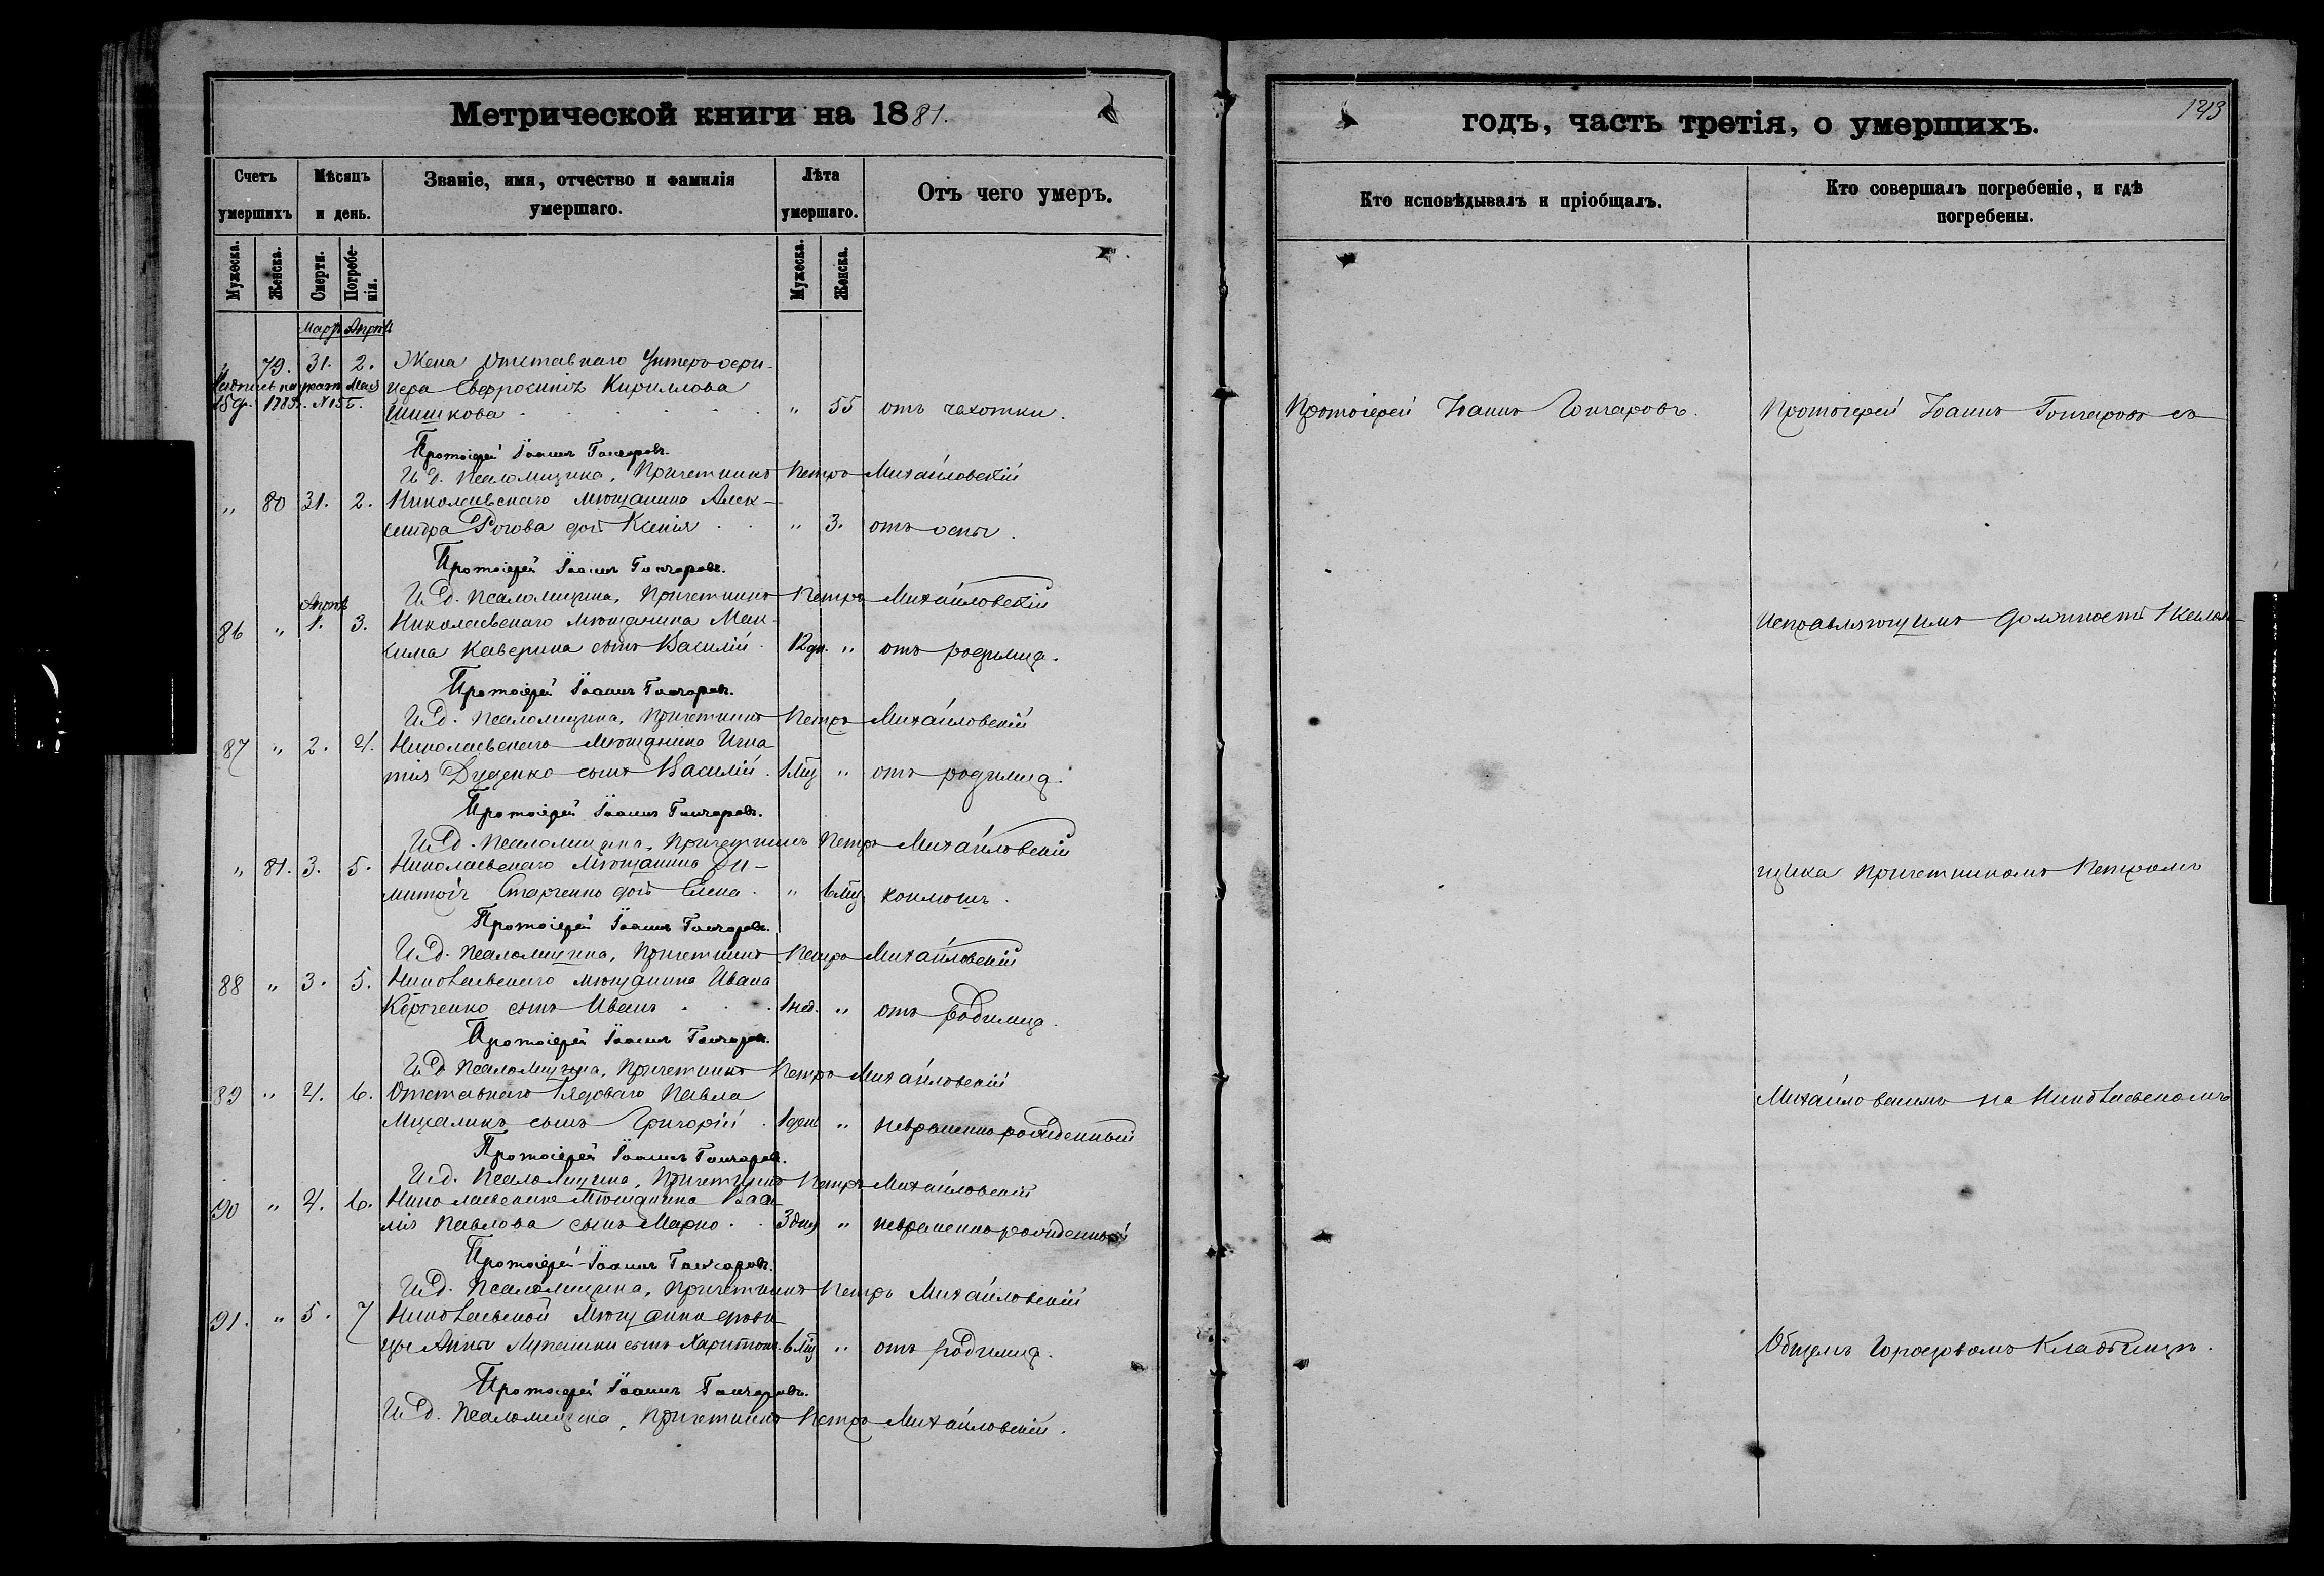 Метрической книги на 1881.
годъ, часть третія, о умершихъ.
143
Счетъ умершихъ
Мѣсяцъ и день.
Званіе, имя, отчество и фамилія умершаго.
Лѣта умершаго.
Отъ чего умеръ.
Кто исповѣдывалъ и пріобщалъ.
Кто совершалъ погребеніе, и гдѣ погребены.
Мужеска.
Женска.
Смерти.
Погребенія.
Мужеска.
Женска.
Март. Апрѣл
" 79. 31. 2. Жена Отставнаго Унтеръ офи-
цера Евфросинія Кириллова
Шишкова " 55 отъ чахотки. Протоіерей Іоаннъ Гончаровъ. Протоіерей Іоаннъ Гончаровъ съ
Протоіерей Іоаннъ Гончаровъ.
И. д. Псаломщика, Причетникъ Петръ Михайловскій
" 80 31. 2. Николаевскаго мѣщанина Алек-
сандра Рогова дочь Ксенія " 3. отъ оспы.
Протоіерей Іоаннъ Гончаровъ.
И. д. Псаломщика, Причетникъ Петръ Михайловскій
Апрѣл
86 " 1. 3. Николаевскаго мѣщанина Мак-
сима Каверина сынъ Василій 12 дн. " отъ родимца. Исправляющимъ должность Псалом-
Протоіерей Іоаннъ Гончаровъ.
И. д. Псаломщика, Причетникъ Петръ Михайловскій
87 " 2. 4. Николаевскаго мѣщанина Игна
тія Дуденко сынъ Василій. 1 мц " отъ родимца.
Протоіерей Іоаннъ Гончаровъ.
И. д. Псаломщика, Причетникъ Петръ Михайловскій
" 81. 3. 5. Николаевскаго мѣщанина Ди-
митрія Старченко дочь Елена " 6 мц коклюшъ. щика Причетникомъ Петромъ
Протоіерей Іоаннъ Гончаровъ.
И. д. Псаломщика, Причетникъ Петръ Михайловскій
88 " 3. 5. Николаевскаго мѣщанина Ивана
сынъ Иванъ 1 нед. " отъ родимца.
Протоіерей Іоаннъ Гончаровъ.
И. д. Псаломщика, Причетникъ Петръ Михайловскій
89 " 4. 6. Отставнаго Рядоваго Павла
сынъ Григорій 1 день " невременнорожденный Михайловскимъ на Николаевскомъ
Протоіерей Іоаннъ Гончаровъ.
И. д. Псаломщика, Причетникъ Петръ Михайловскій
90 " 4. 6. Николаевскаго мѣщанина Васи
лія Павлова сынъ Марко 3 дня " невременнорожденный
Протоіерей Іоаннъ Гончаровъ.
И. д. Псаломщика, Причетникъ Петръ Михайловскій
91. " 5. 7 Николаевской Мѣщанки
Анны сынъ Харитонъ. 6 мц " отъ родимца. Общемъ Городовомъ Кладбищѣ.
Протоіерей Іоаннъ Гончаровъ.
И. д. Псаломщика, Причетникъ Петръ Михайловскій.